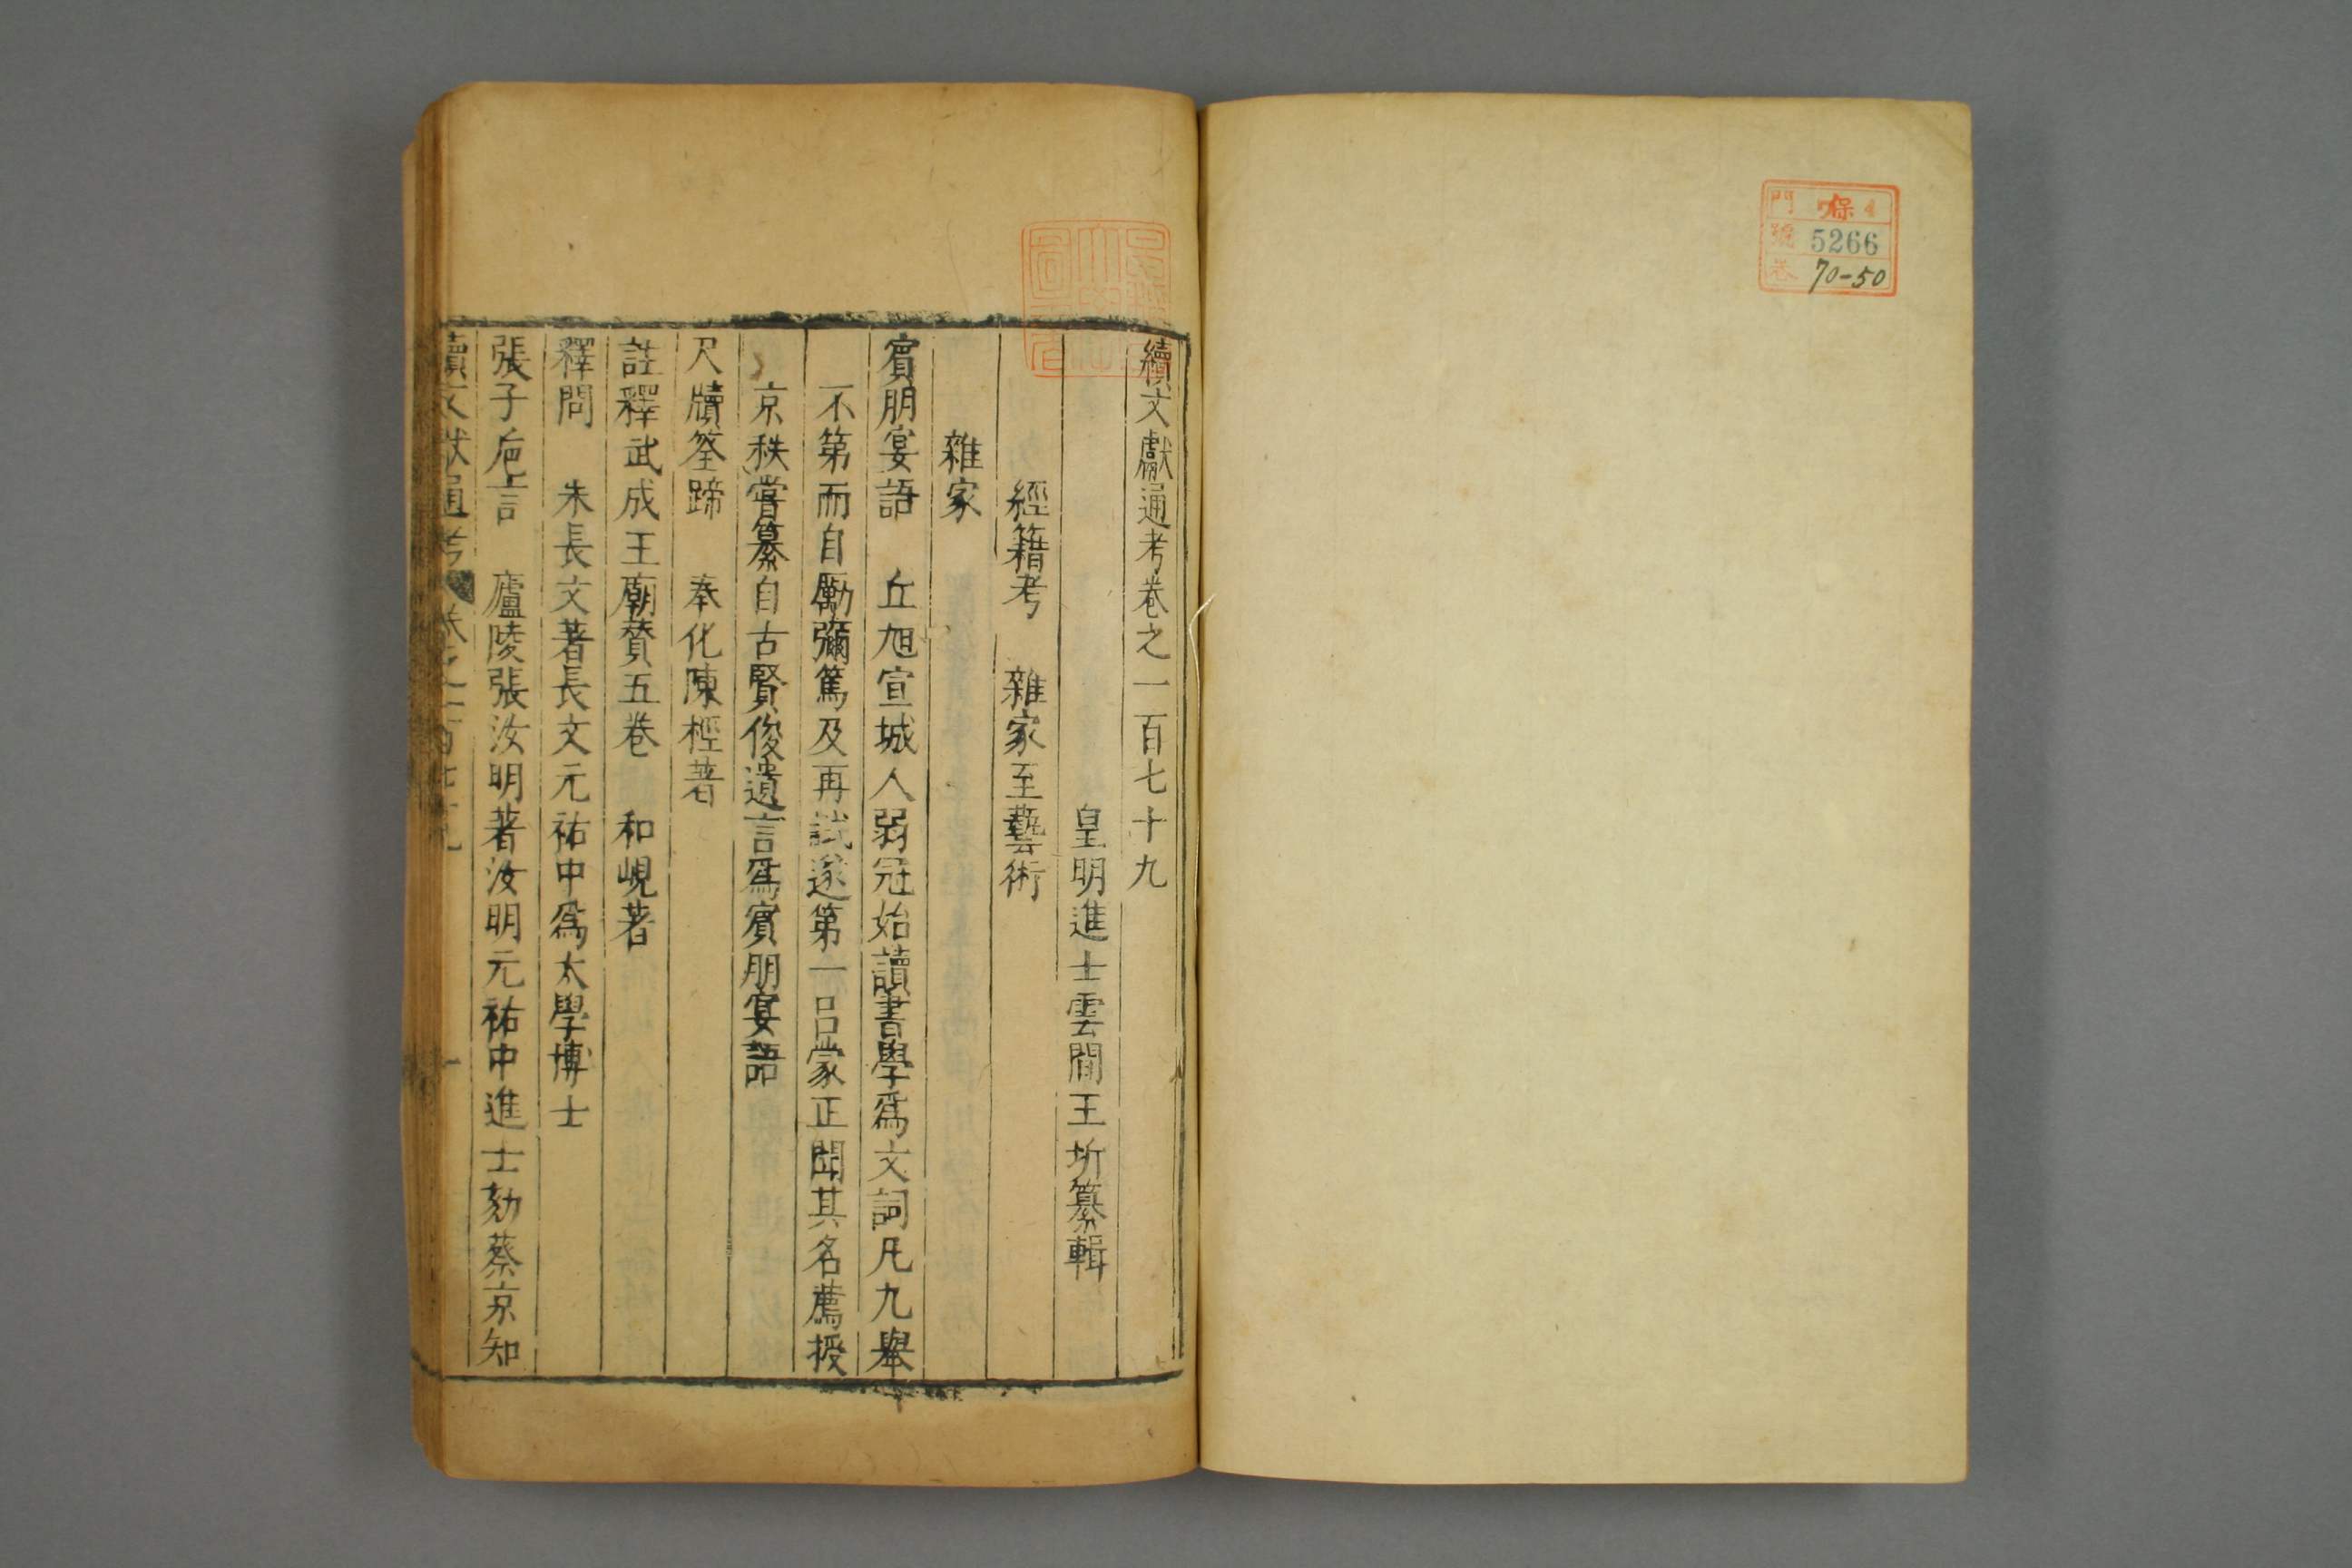 門 保 4
號 5266
卷 70-50
續文獻通考卷之一百七十九
皇明進士雲間王圻纂輯
經籍考 雜家至藝術
雜家
賓朋宴語 丘旭宣城人弱冠始讀書學爲文詞凡九舉
不第而自勵彌篤及再試遂第一呂蒙正聞其名薦授
京秩嘗纂自古賢俊遺言爲賓朋宴語
尺牘筌蹄 奉化陳桱著
註釋武成王廟贊五卷 和峴著
釋問 朱長文著長文元祐中爲太學博士
張子卮言 廬陵張汝明著汝明元祐中進士劾蔡京知
續文獻通考 卷之一百七十九 一